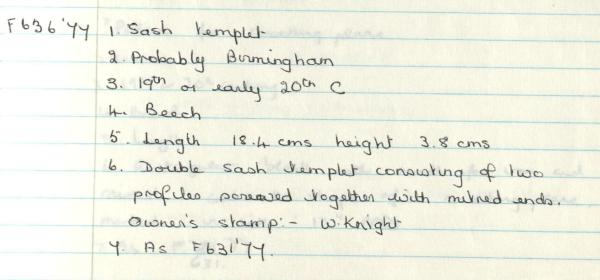 F636'77 1. Sash templet
2. Probably Birmingham
3. 19th or early 20th C
4. Beech
5. Length 18.4 cms height 3.8 cms
6. Double sash templet consisting of two
profiles screwed together with mitred ends.
Owner's stamp:- W.Knight
7. As F631'77.